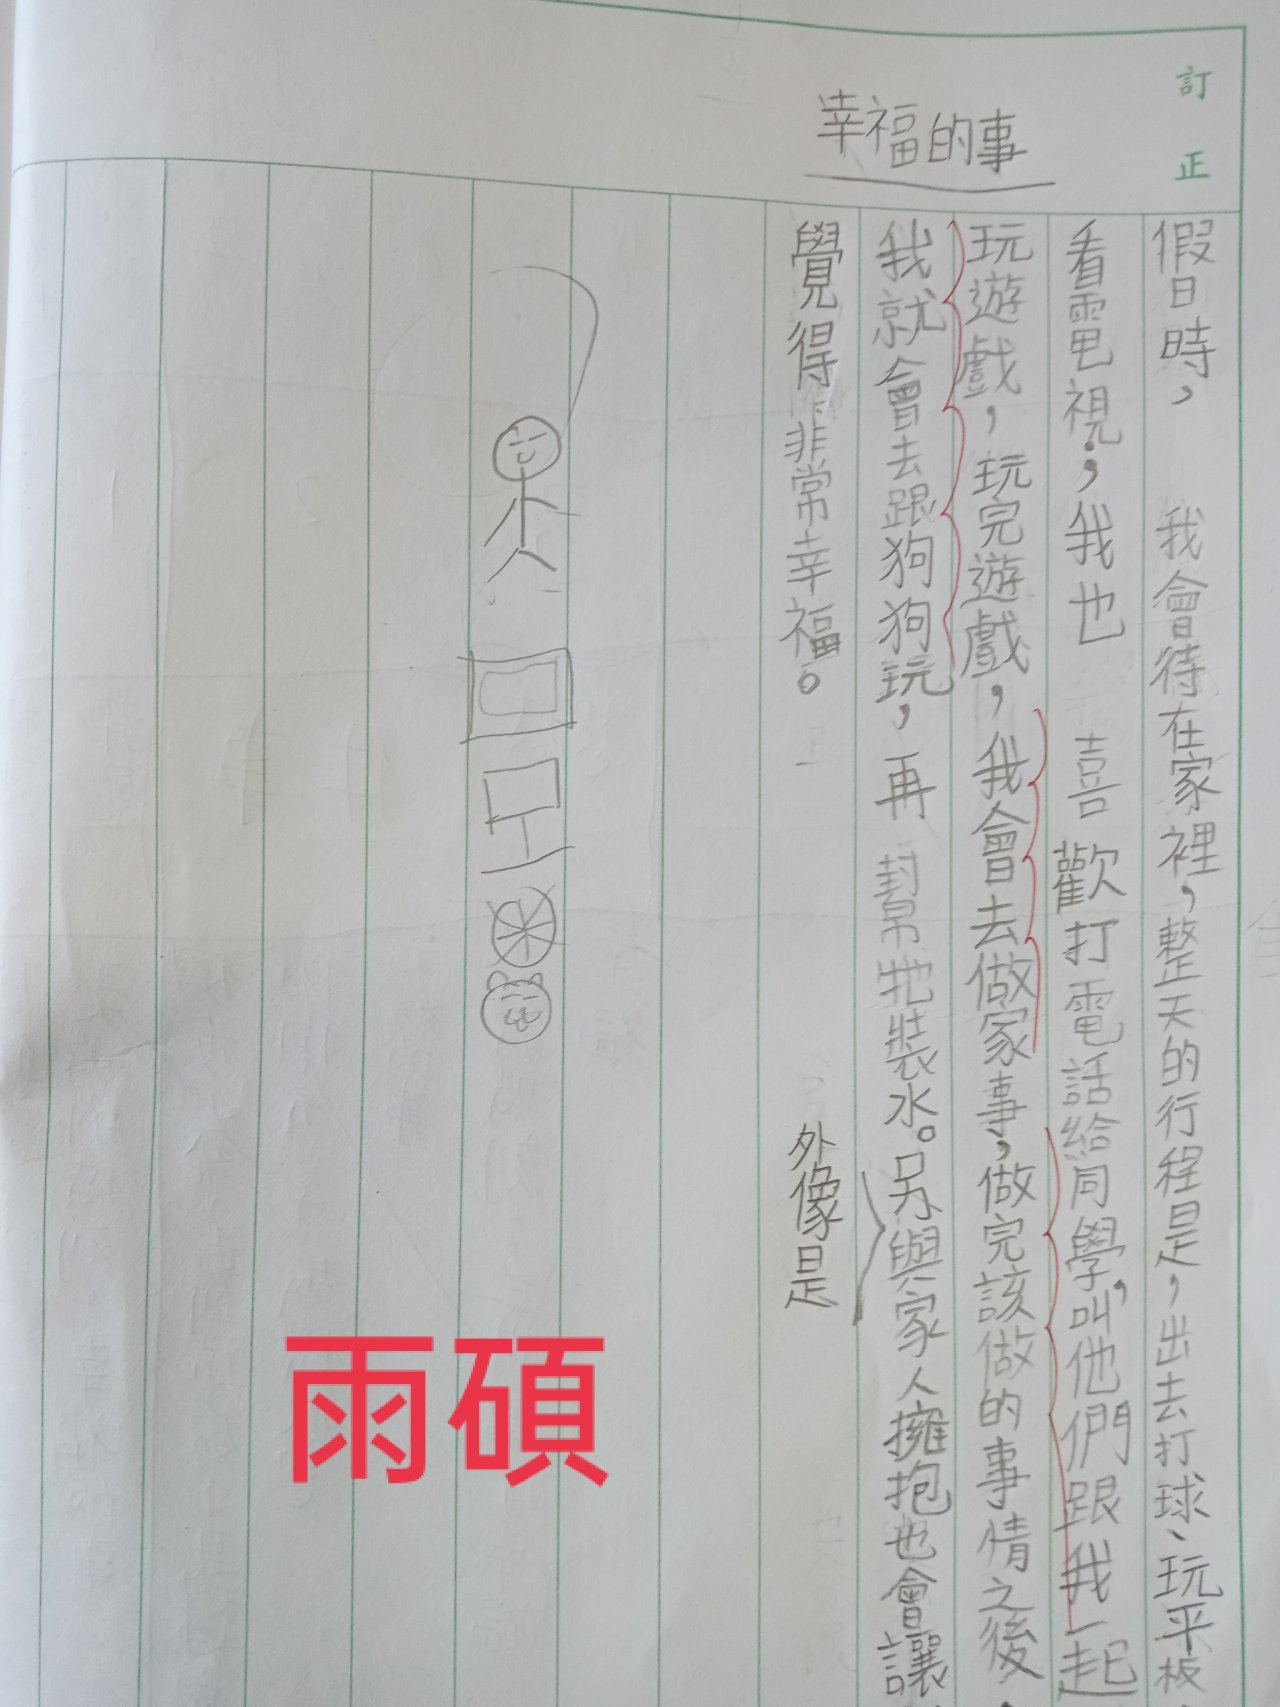 訂正
幸福的事
假日時，我會待在家裡，整天的行程是，出去打球、玩平板
看電視，我也喜歡打電話給同學，叫他們跟我一起
玩遊戲，玩完遊戲，我會去做家事，做完該做的事情之後，
我就會去跟狗狗玩，再幫牠裝水。另與家人擁抱也會讓
外像是
覺得非常幸福。
雨碩